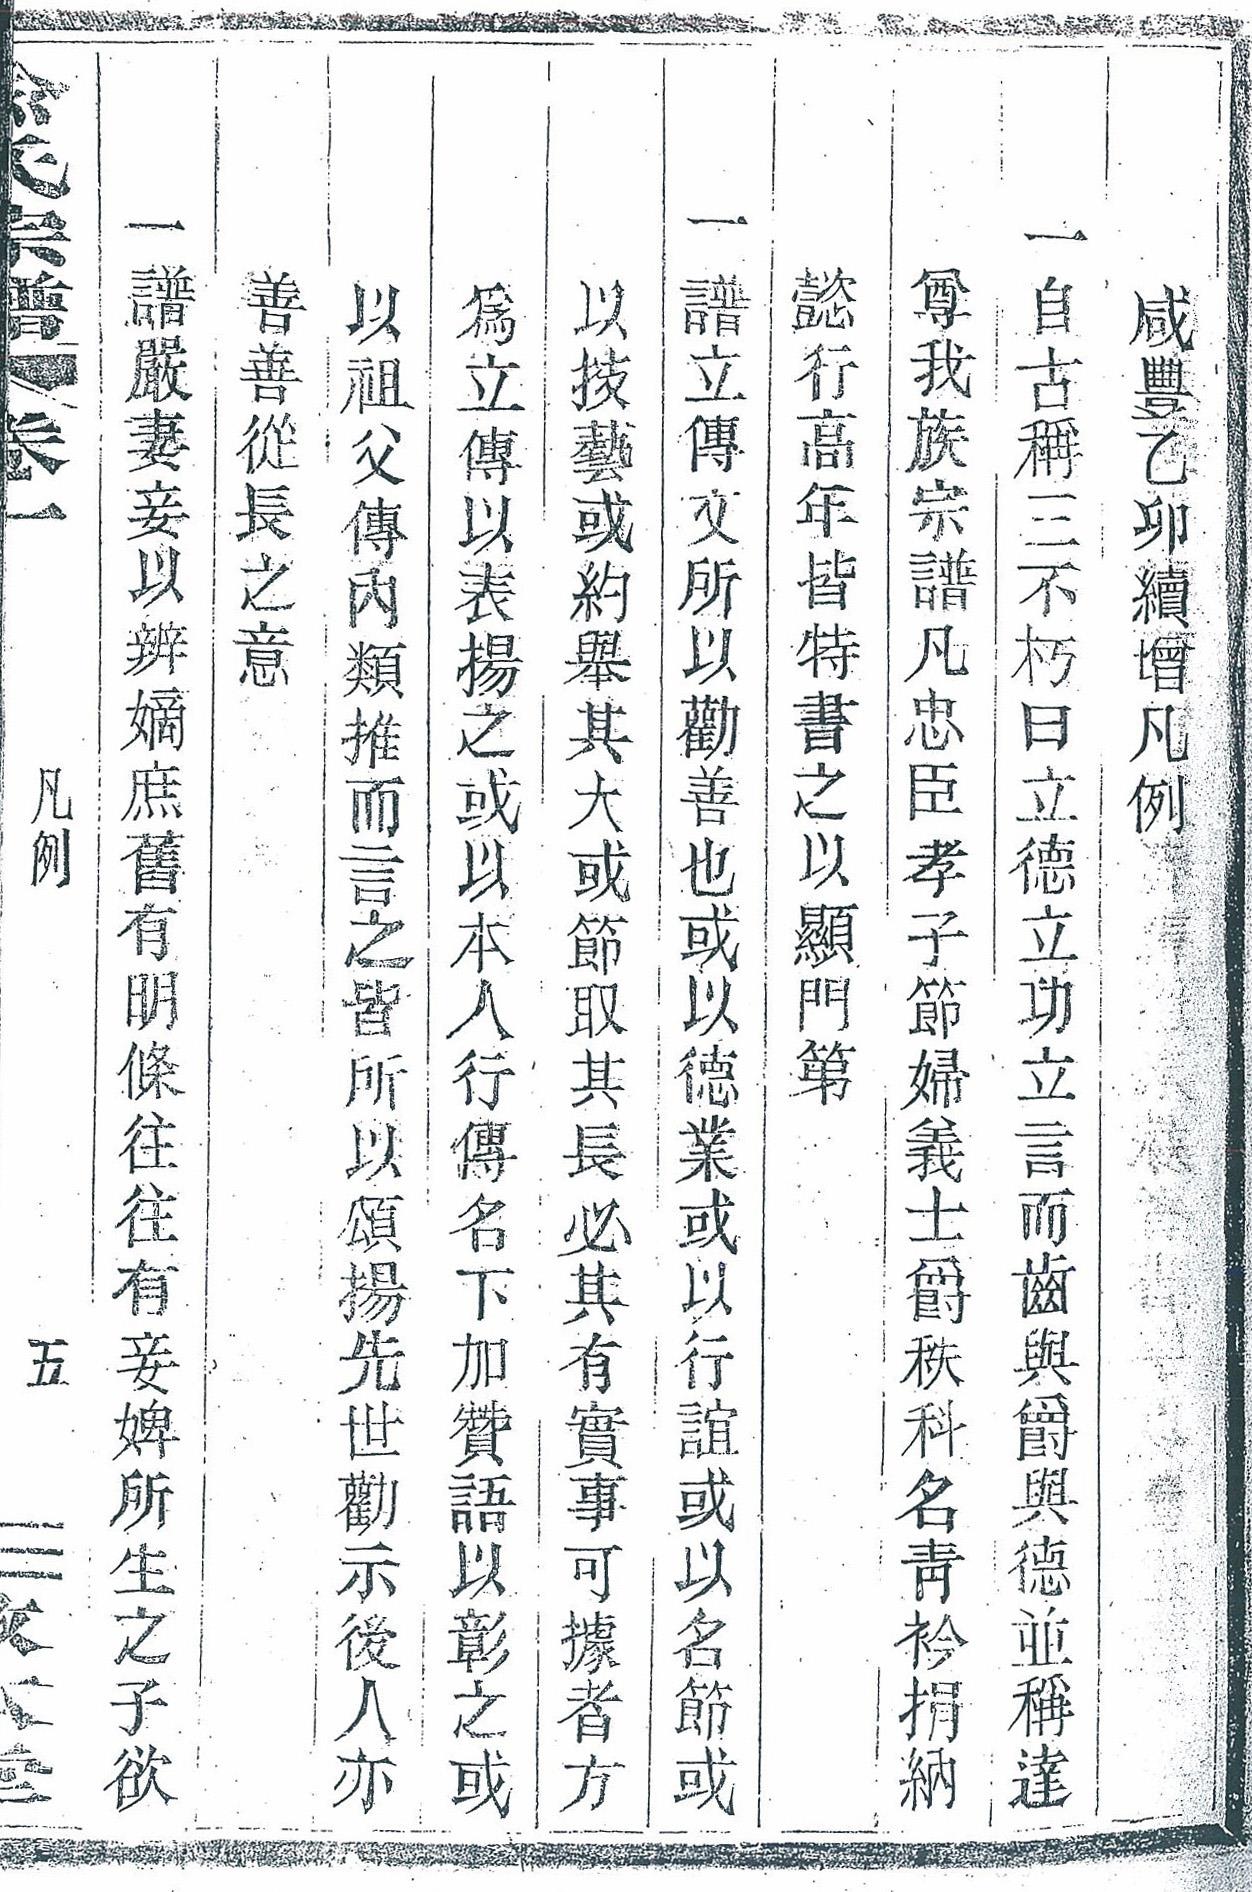 咸豐乙卯續增凡例
一自古稱三不朽曰立德立功立言而齒與爵與德並稱達
尊我族宗譜凡忠臣孝子節婦義士爵秩科名靑衿捐納
懿行高年皆特書之以顯門第
一譜立傳文所以勸善也或以德業或以行誼或以名節或
以技藝或約舉其大或節取其長必其有實事可據者方
爲立傳以表揚之或以本人行傳名下加贊語以彰之或
以祖父傳內類推而言之皆所以頌揚先世勸示後人亦
善善從長之意
一譜嚴妻妾以辨嫡庶舊有明條往往有妾婢所生之子欲
氏宗譜 卷一 凡例 五